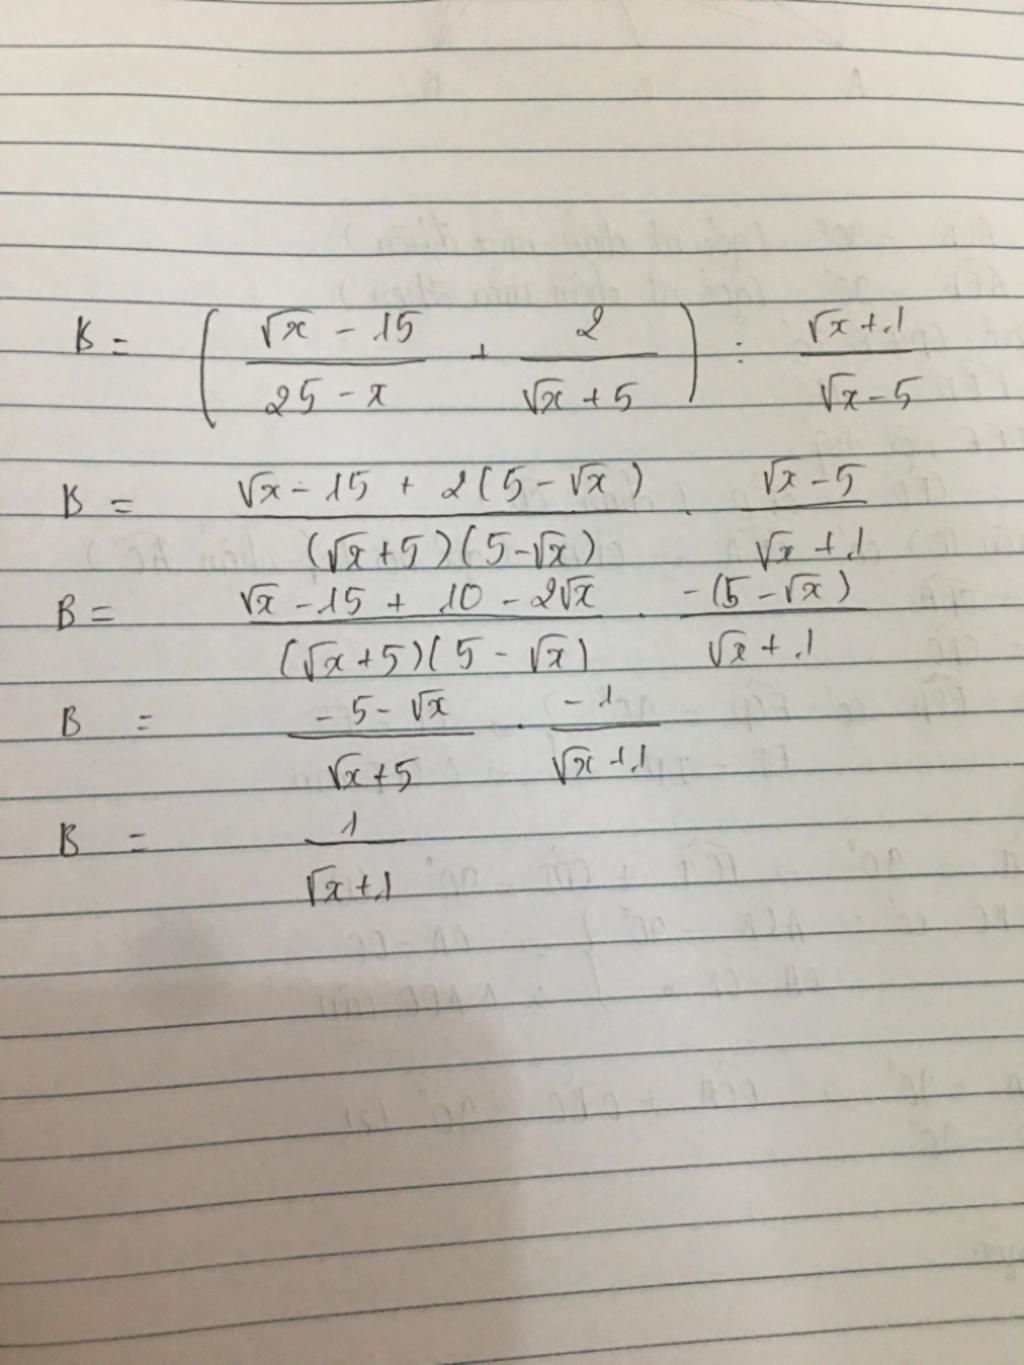 B = ( (√x - 15)/(25 - x) + 2/(√x + 5) ) : (√x + 1)/(√x - 5)
B = (√x - 15 + 2(5 - √x))/((√x + 5)(5 - √x)) . (√x - 5)/(√x + 1)
B = (√x - 15 + 10 - 2√x)/((√x + 5)(5 - √x)) . (-(5 - √x))/(√x + 1)
B = (-5 - √x)/(√x + 5) . (-1)/(√x + 1)
B = 1/(√x + 1)